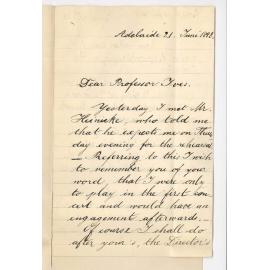 Adelaide 21. Juni 1898.
Dear Professor Ives.
Yesterday I met Mr.
Heinicke, who told me
that he expects me on Thurs
day evening for the rehearsal
– Referring to this I wish
to remember you of your
word, that I were only
to play in the first con
cert and would have an
engagement afterwards. –
Of course I shall do
after your's, the Director's